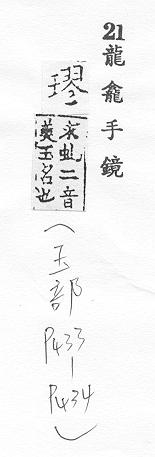 21 龍龕手鏡
璆
求虬二音
美玉名也
(玉部 P433-P434)